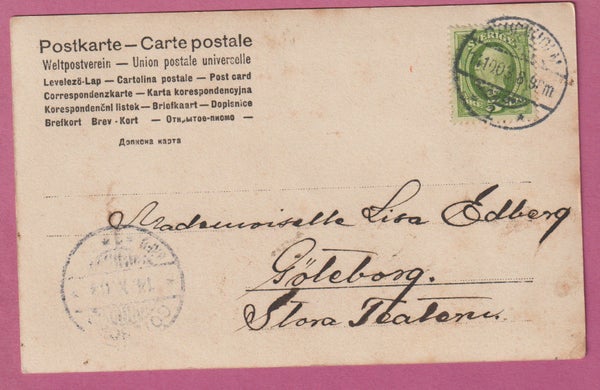 Postkarte — Carte postale
Weltpostverein — Union postale universelle
Levelező-Lap — Cartolina postale — Post card
Correspondenzkarte — Karta korespondencyjna
Korespondenční listek — Briefkaart — Dopisnice
Brefkort Brev-Kort — Открытое-писмо —
Дописна карта
SVERIGE
Mademoiselle Lisa Edberg
Göteborg.
Stora Teatern.